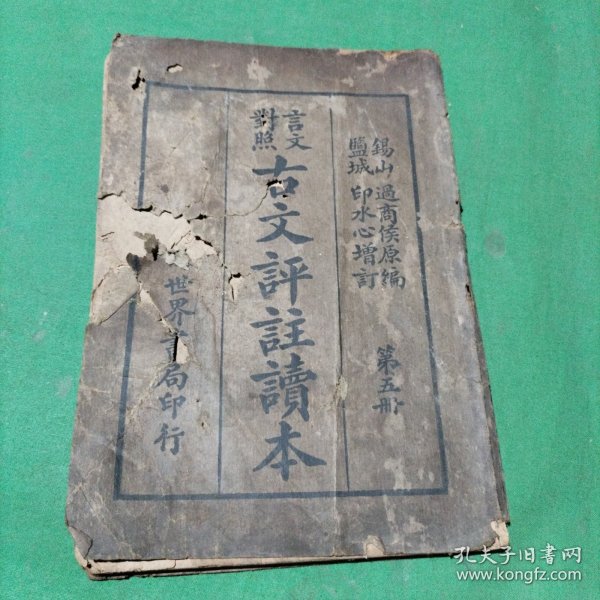 錫山 過商侯原編
鹽城 印水心增訂
第五冊
言文
對照
古文評註讀本
世界書局印行
孔夫子旧书网
www.kongfz.com